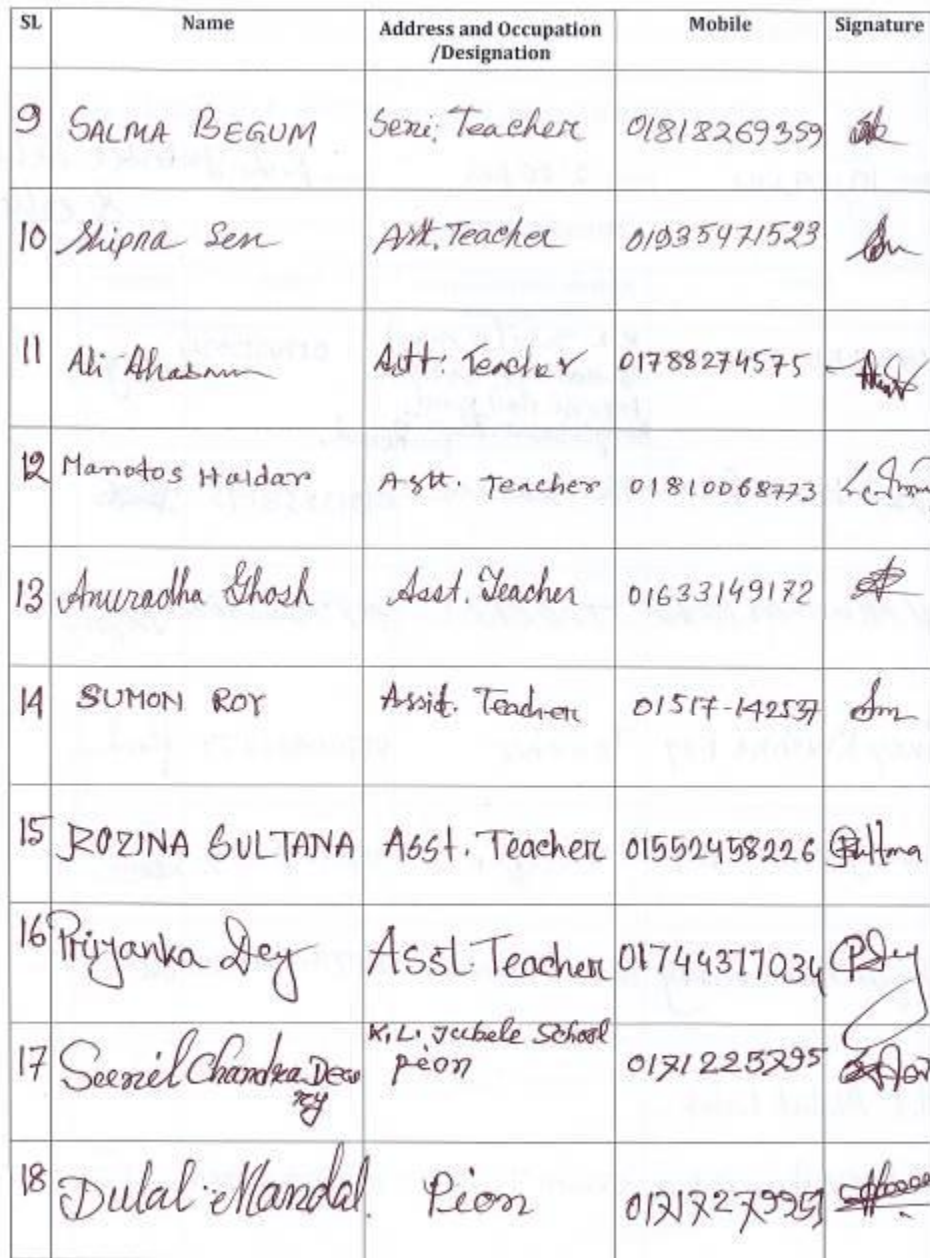 SL Name Address and Occupation /Designation Mobile Signature
9 SALMA BEGUM Seni; Teacher 01818269359
10 Shipra Sen Astt. Teacher 01935471523
11 Ali Ahasan Astt: Teacher 01788274575
12 Manotos Haldar Astt. Teacher 01810068773
13 Anuradha Ghosh Asst. Teacher 01633149172
14 SUMON ROY Assit. Teacher 01517-142537
15 ROZINA SULTANA Asst. Teacher 01552458226
16 Priyanka Dey Asst. Teacher 01744377034 PDey
17 Chandra K.L. Jubele School
peon
18 Dulal Mandal Peon